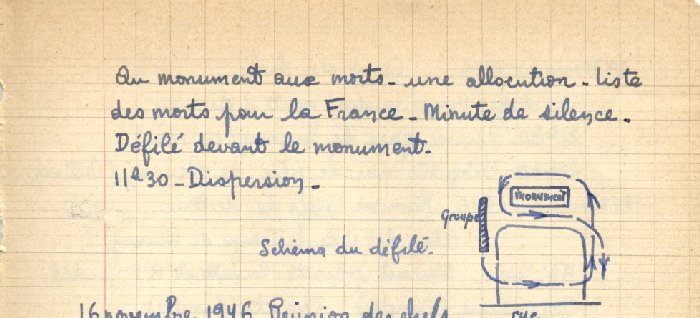 Au monument aux morts - une allocution - Liste
des morts pour la France - Minute de silence -
Défilé devant le monument -
11h30 - Dispersion -
MONUMENT
Groupe
Schéma du défilé.
rue
16 novembre 1946 Réunion des chefs